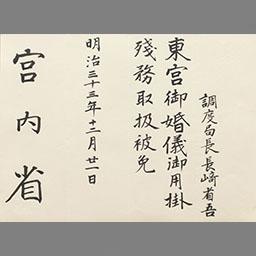 調度局長長崎省吾
東宮御婚儀御用掛
殘務取扱被免
明治三十三年十二月廿一日
宮内省